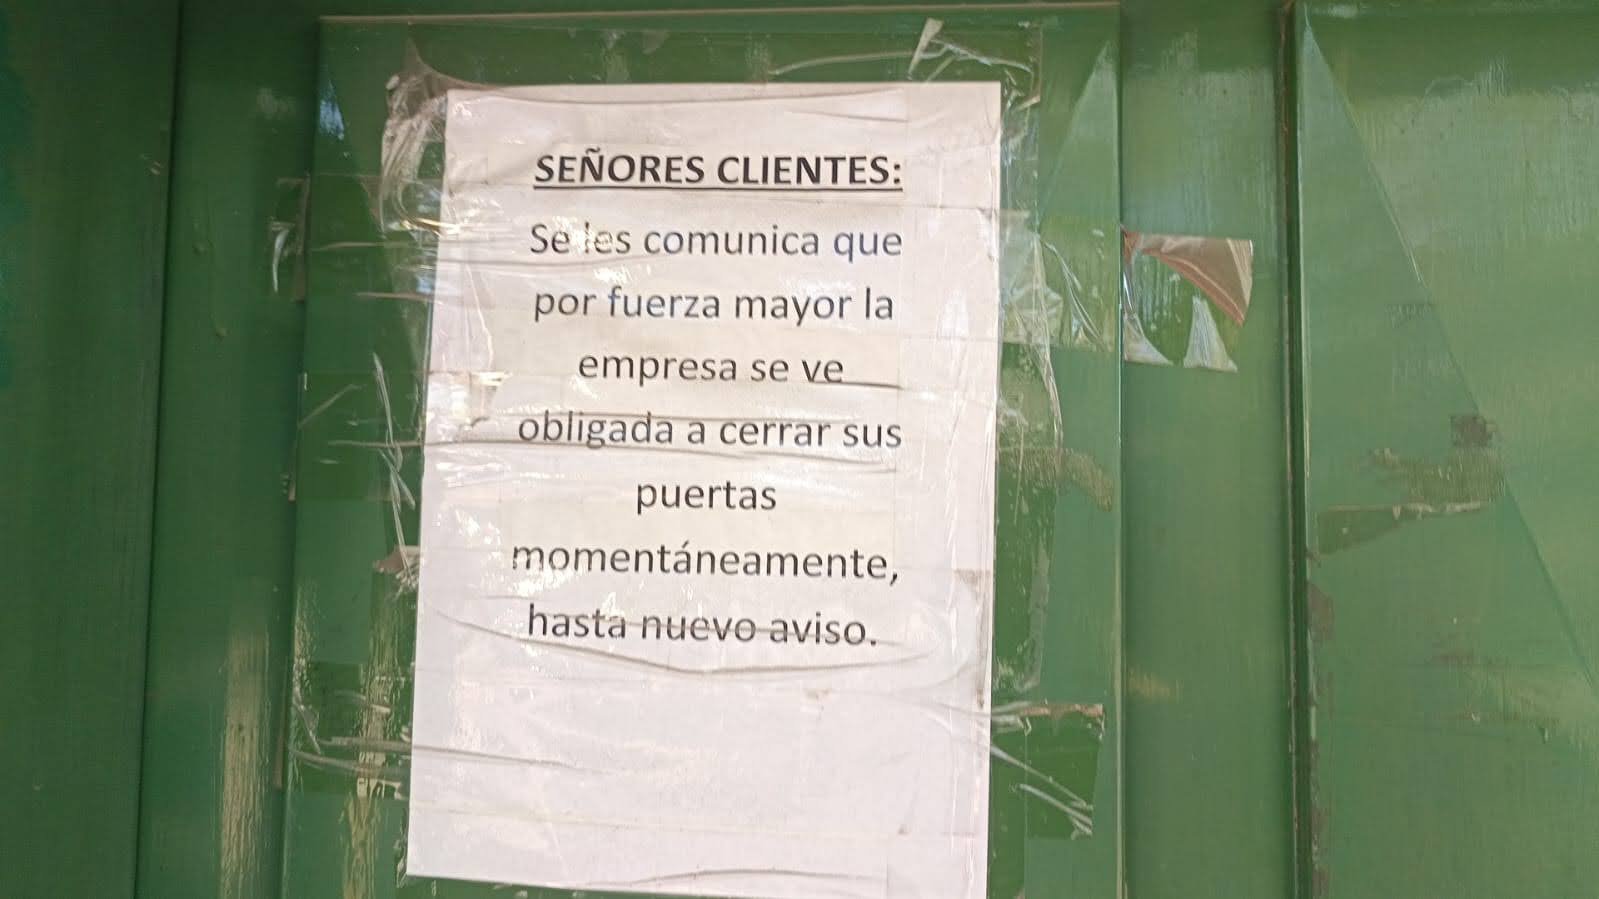 SEÑORES CLIENTES:
Se les comunica que
por fuerza mayor la
empresa se ve
obligada a cerrar sus
puertas
momentáneamente,
hasta nuevo aviso.